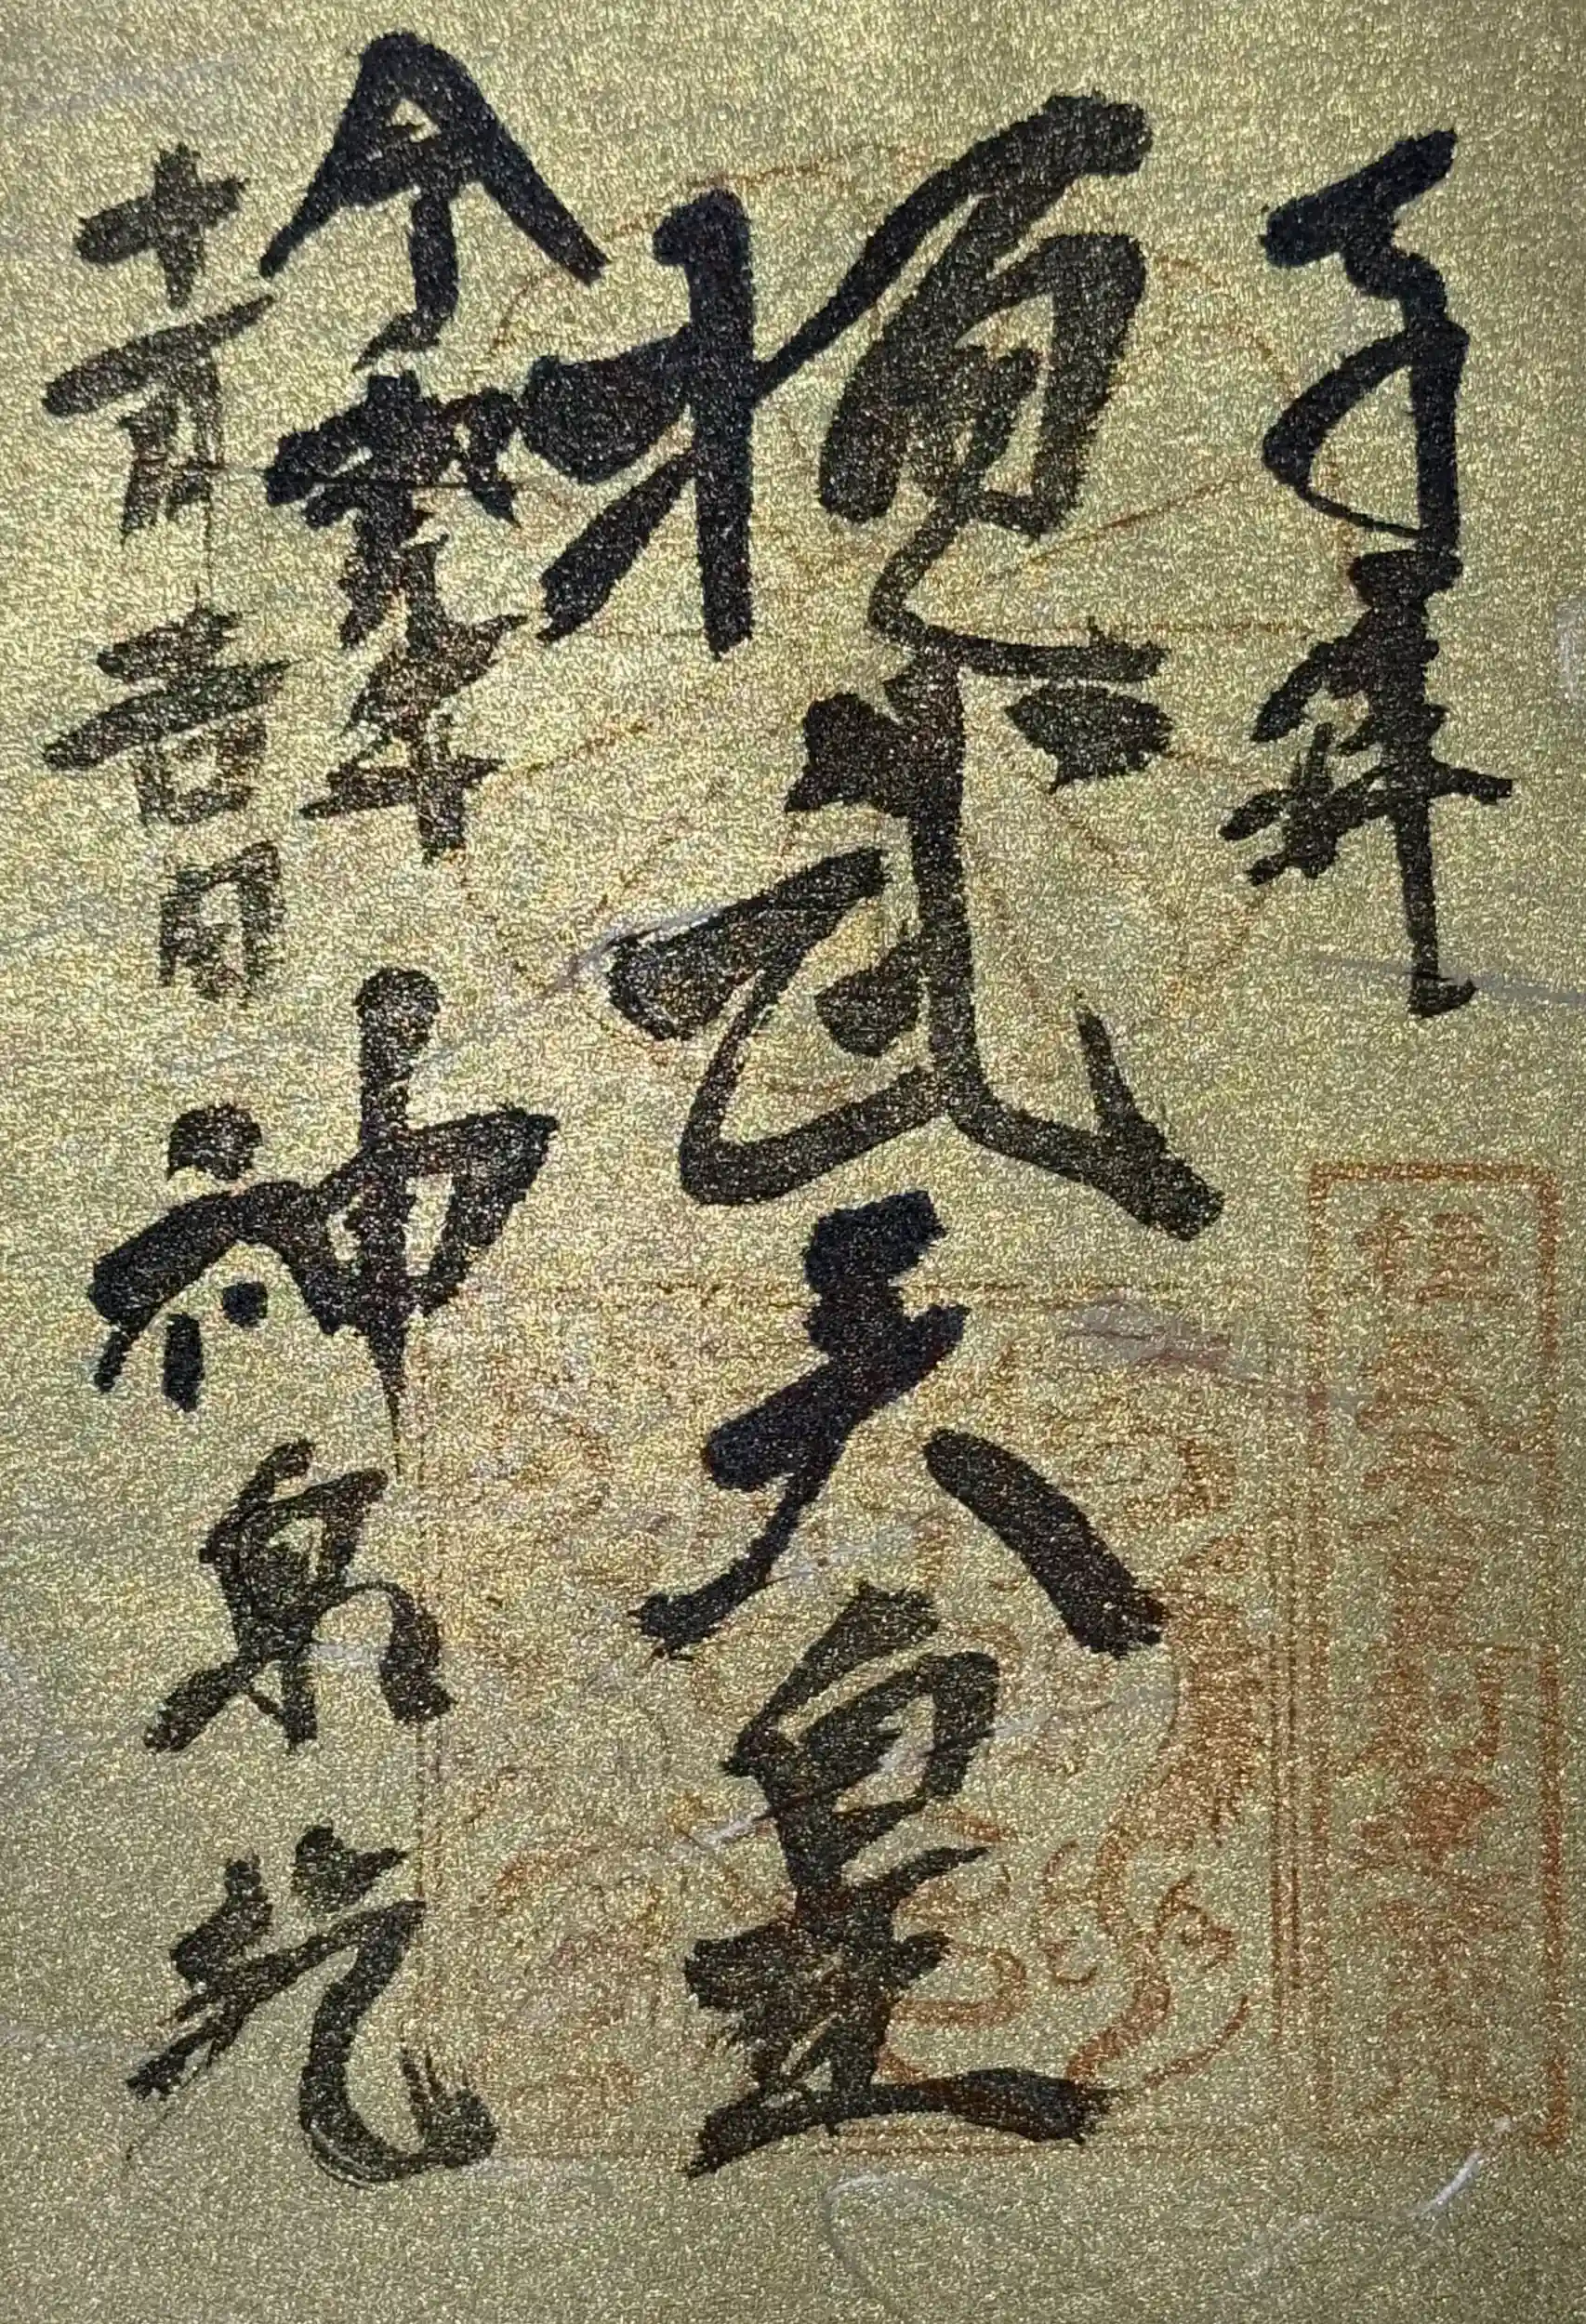 奉拝
桓武天皇
令和元年
十一月吉日
神泉苑